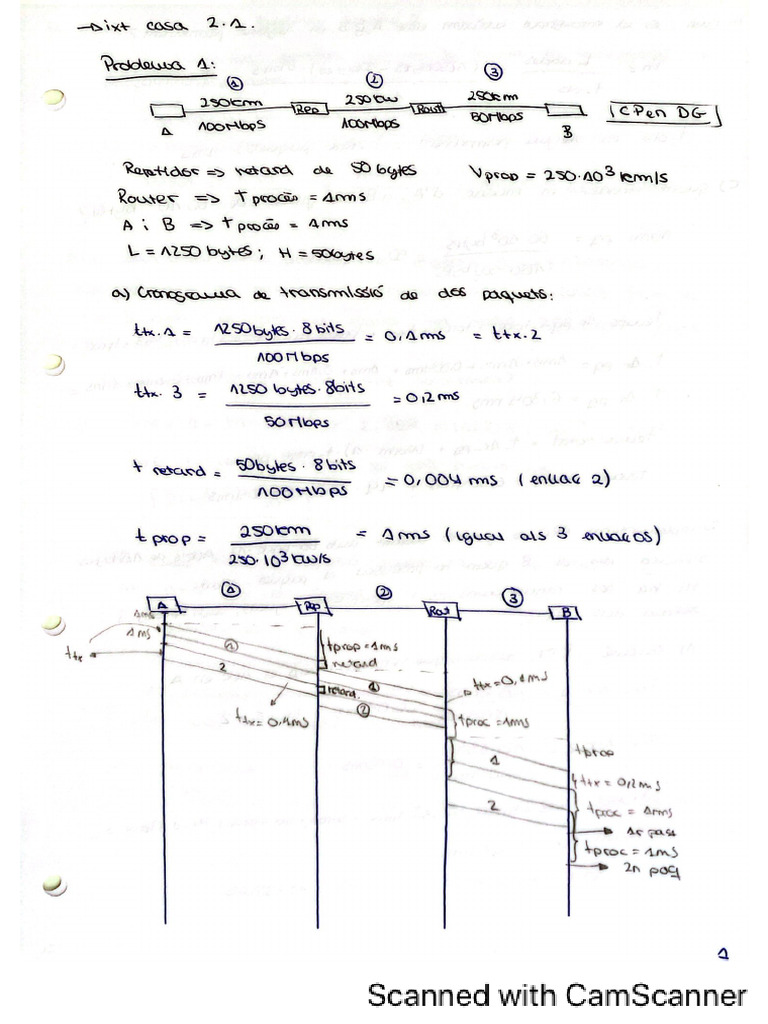 →Dixt casa 2.1.
Problema 1:
① ② ③
250km Rep 250km Rout 250km
A 100Mbps 100Mbps 50Mbps B
CPen DG
Repetidor => retard de 50 bytes Vprop = 250·10³ km/s
Router => t procés = 1ms
A i B => t procés = 1ms
L = 1250 bytes ; H = 50bytes
a) Cronograma de transmissió de dos paquets:
ttx.1 = 1250bytes · 8bits / 100Mbps = 0,1ms = ttx.2
ttx. 3 = 1250 bytes · 8bits / 50Mbps = 0,2ms
t retard = 50bytes · 8bits / 100Mbps = 0,004 ms (enllaç 2)
t prop = 250km / 250·10³ km/s = 1ms (igual als 3 enllaços)
① ② ③
A Rep Rout B
1ms
1ms
ttx
① tprop = 1ms
retard
2 ① ttx = 0,1ms
retard.
② tproc = 1ms
ttx = 0,1ms
tprop
1
ttx = 0,2ms
2 tproc = 1ms
1r paq
tproc = 1ms
2n paq
1
Scanned with CamScanner